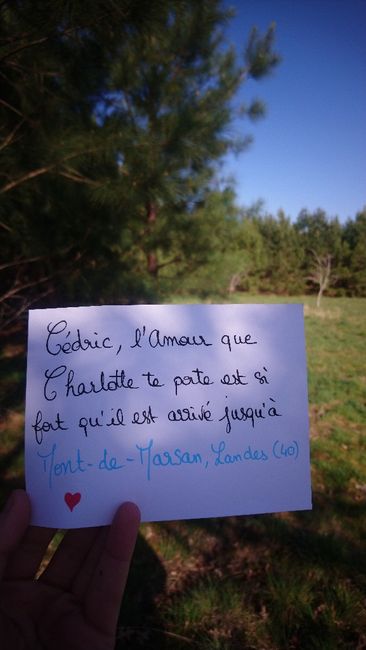 Cédric, l'Amour que
Charlotte te porte est si
fort qu'il est arrivé jusqu'à
Mont-de-Marsan, Landes (40)